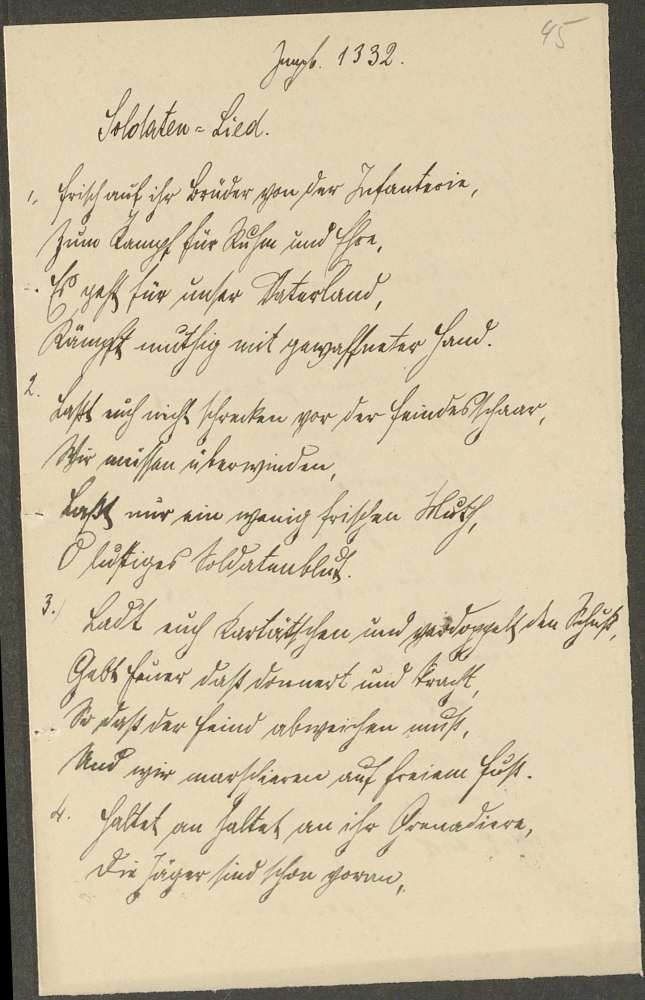 45
1332.
Soldaten=Lied.
1, Frisch auf ihr Brüder von der Infanterie,
Zum Kampf für Ruhm und Ehre,
Es geht für unser Vaterland,
Kämpft muthig mit gewaffneter Hand.
2.
Laßt euch nicht schrecken vor der Feindesschaar,
Wir müssen überwinden,
Laßt nur ein wenig frischen Muth,
O lustiges Soldatenblut.
3.) Ladt euch Kartätschen und verdoppelt den Schuß,
Gebt Feuer daß donnert und kracht,
So daß der Feind abweichen muß,
Und wir marschieren auf freiem Fuß.
4. Haltet an haltet an ihr Grenadiere,
Die Jäger sind schon voran,